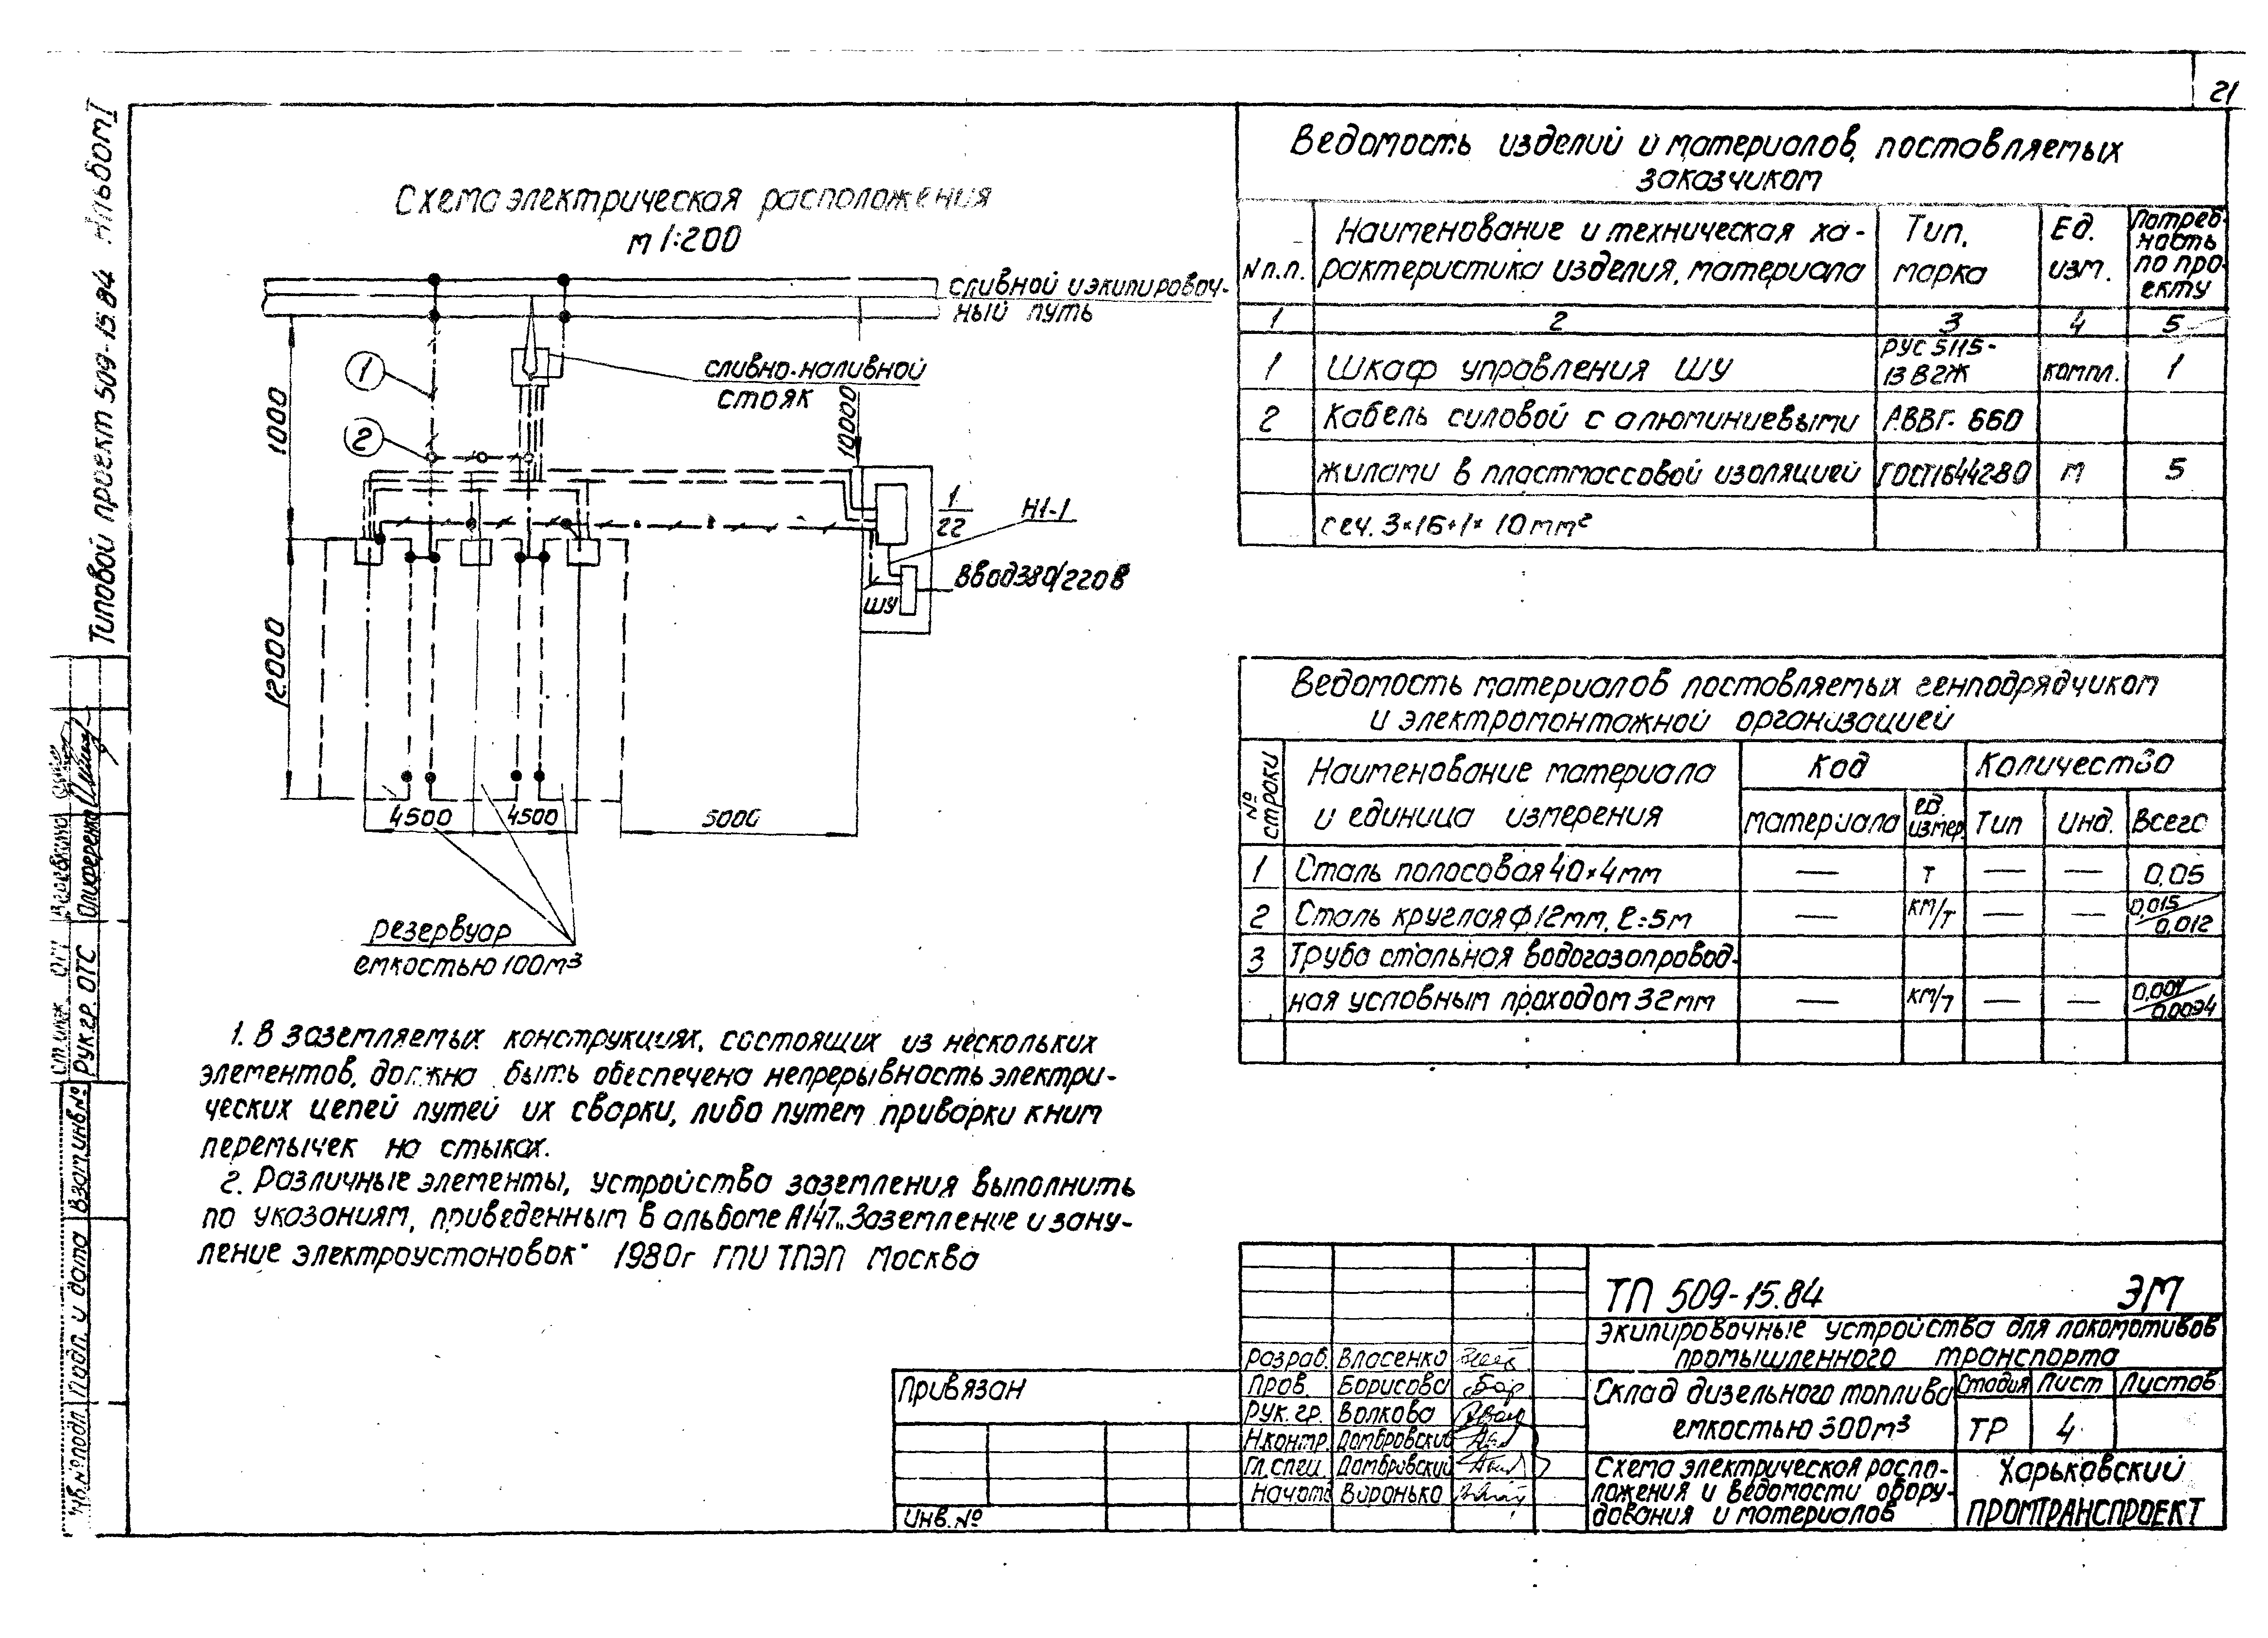 21
Типовой проект 509-15.84 Альбом I
Схема электрическая расположения
м 1:200
сливной и экипировоч-
ный путь
1
сливно-наливной
стояк
2
1000
10000
1
22
Н1-1
Ввод 380/220В
ШУ
12000
4500
4500
5000
резервуар
емкостью 100м³
1. В заземляемых конструкциях, состоящих из нескольких
элементов, должна быть обеспечена непрерывность электри-
ческих цепей путей их сварки, либо путем приварки к ним
перемычек на стыках.
2. Различные элементы, устройства заземления выполнить
по указаниям, приведенным в альбоме А147 „Заземление и зану-
ление электроустановок" 1980г ГПИ ТПЭП Москва
Ведомость изделий и материалов, поставляемых
заказчиком
N п.п.
Наименование и техническая ха-
рактеристика изделия, материала
Тип,
марка
Ед.
изм.
Потреб-
ность
по про-
екту
1 2 3 4 5
1 Шкаф управления ШУ РУС 5115-
13В2Ж компл. 1
2 Кабель силовой с алюминиевыми АВВГ-660
жилами в пластмассовой изоляцией ГОСТ16442-80 м 5
сеч. 3×16+1×10мм²
Ведомость материалов поставляемых генподрядчиком
и электромонтажной организацией
№
строки
Наименование материала
и единица измерения
Код
Количество
материала
ед.
измер.
Тип
Инд.
Всего
1 Сталь полосовая 40×4мм — т — — 0,05
2 Сталь круглая ф12мм, ℓ=5м — км/т — — 0,015/0,012
3 Труба стальная водогазопровод-
ная условным проходом 32мм — км/т — —
ТП 509-15.84 ЭМ
Экипировочные устройства для локомотивов
промышленного транспорта
Склад дизельного топлива
емкостью 300м³
Стадия Лист Листов
ТР 4
Схема электрическая распо-
ложения и ведомости обору-
дования и материалов
Харьковский
ПРОМТРАНСПРОЕКТ
Разраб. Власенко
Пров. Борисова
Рук. гр. Волкова
Н.контр. Домбровский
Гл. спец. Домбровский
Виронько
Привязан
Инв. №
Рук. гр. ОТС
Взам.инв №
Подп. и дата
Инв. № подл.